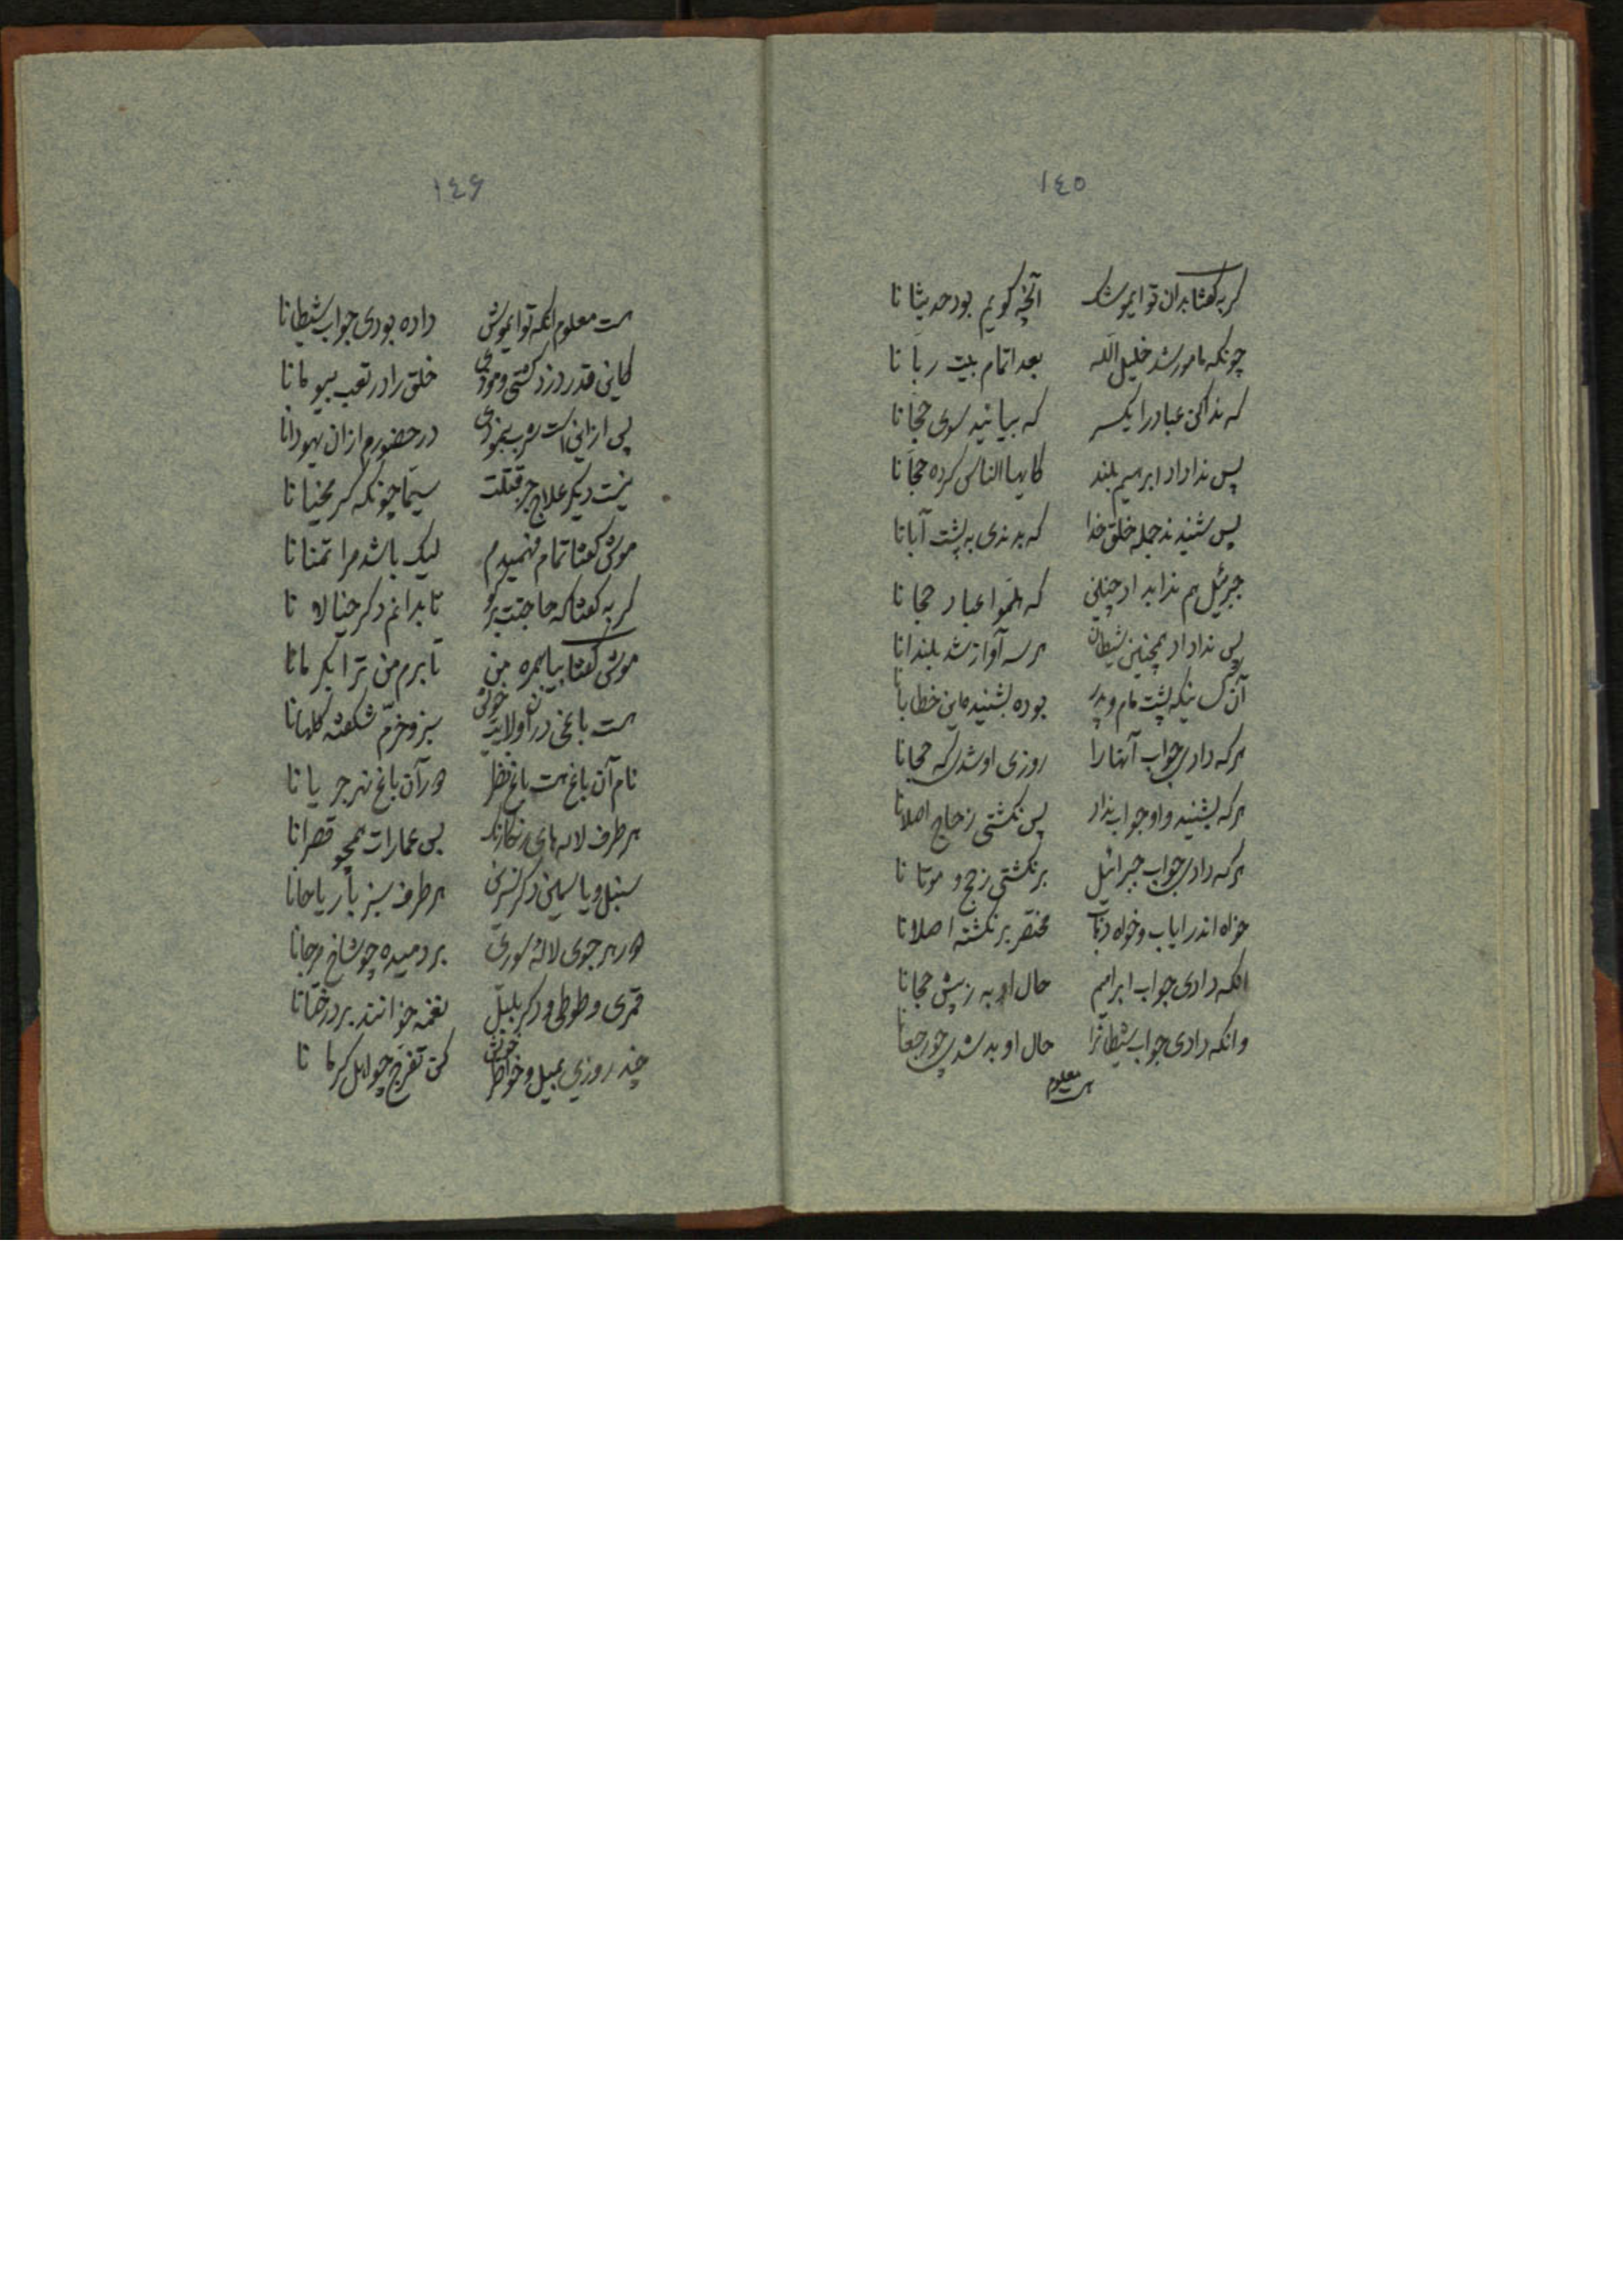 ١٤٥
گربه گفتا بدان تو ایموشک آنچه گویم بود حدیثا نا
چونکه مامور شد خلیل الله بعد اتمام بیت ربا نا
که ندا کن عباد را یکسر که بیائید سوی حجا نا
پس ندا داد ابرهیم بلند کایها الناس کرده حجا نا
پس شنیدند جمله خلق خدا که بدندی به پشت آبانا
جبرئیل هم ندا بداد چنین که هلموا عباد حجا نا
پس ندا داد همچنین شیطان هر سه آواز شد بلندانا
آن کسانیکه پشت مام و پدر بوده بشنیده این خطابانا
هر که دادی جواب آنها را روزی او شدی که حجانا
هر که بشنید و او جواب نداد پس نگشتی ز حاج اصلانا
هر که دادی جواب جبرائیل برنگشتی ز حج و موتا نا
خواه اندر ایاب و خواه ذهاب مختصر برنگشته اصلانا
انکه دادی جواب ابراهیم حال او به ز پیش حجانا
وانکه دادی جواب شیطانرا حال او بد شدی چو رجعانا
هست معلوم
١٤۶
هست معلوم انکه تو ایموش داده بودی جواب شیطانا
کاین قدر دزد گشتی و موذی خلق را در تعب بیومانا
پس از این است شرب بنمودی در حضورم از ان یهودانا
نیست دیگر علاج جز قتلت سیما چونکه گر محنیانا
موش گفتا تمام فهمیدم لیک باشد مرا تمنانا
گربه گفتا که حاجتت برگو تا بدانم دگر خیالا نا
موش گفتا بیا بهمره من تا برم من ترا بکرمانا
هست باغی در آن ولایت خوش سبز و خرم شکفته گلهانا
نام آن باغ هست باغ نظر در آن باغ نهر جریانا
هر طرف لاله های رنگارنگ بس عمارات همچو قصرانا
سنبل و یاسمین دگر نسرین هر طرف سبز با ریاحانا
در بر جوی لاله سوری بردمیده چو شاخ مرجانا
قمری و طوطی و دگر بلبل نغمه خوانند بر درختانا
چند روزی بمیل و خواطر خویش کن تفرج چو اهل کرمانا